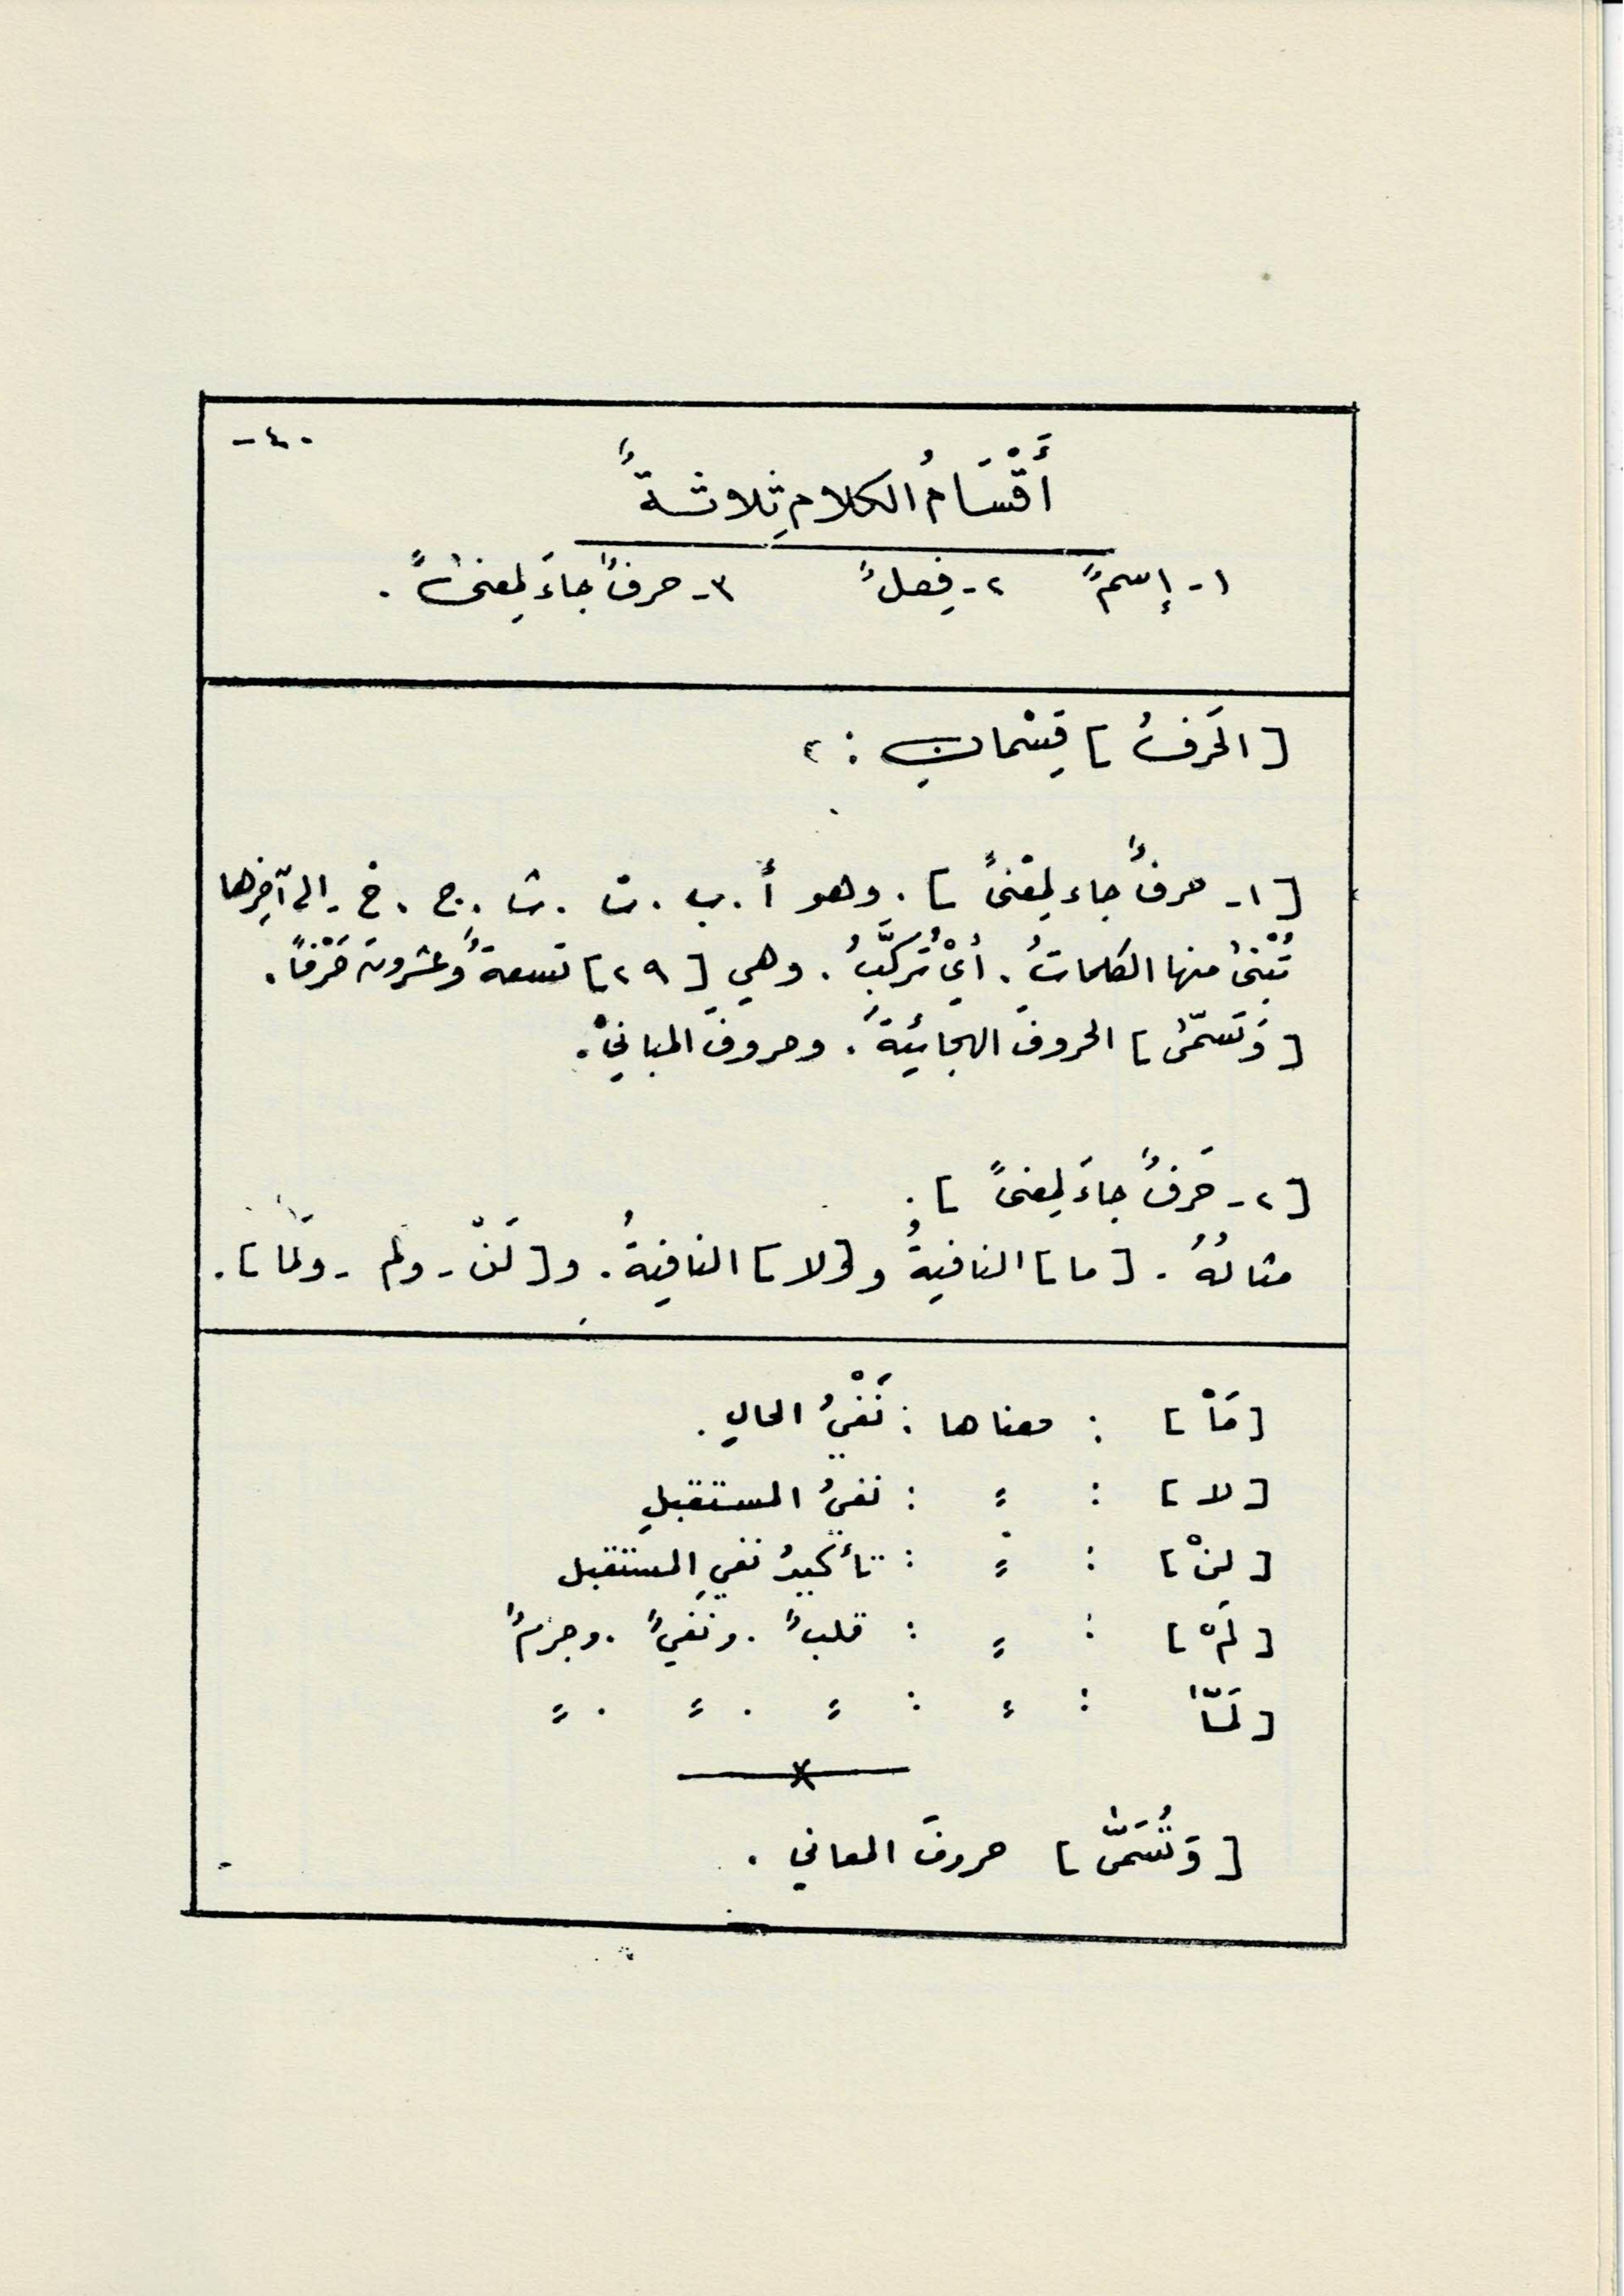 -٤٠
أَقْسَامُ الكلام ثلاثةٌ
١- إسمٌ ٢- فِعلٌ ٣- حرفٌ جاءَ لِمعنىً .
[ الحَرفُ ] قِسْمانِ : ٢
[ ١- حرفٌ جاء لِمعْنىً ] . وهو أ . ب . ت . ث . ج . خ - الى آخِرها
تُبْنىٰ منها الكلماتُ . أيْ تُرَكَّبُ . وهي [ ٢٩ ] تسعةٌ وعشرون حَرْفاً .
[ وَتسمّىٰ ] الحروفَ الهجائيّةَ . وحروفَ المبانيْ .
[ ٢- حَرفٌ جاءَ لِمعنىً ] .
مثالُهُ . [ ما ] النافيةُ و [ لا ] النافيةُ . و [ لَنْ - ولم - ولمّا ] .
[ مَاْ ] : معناها : نَفْيُ الحالِ .
[ لا ] : = : نفيُ المستقبلِ
[ لنْ ] : = : تأكيدُ نفيِ المستقبل
[ لَمْ ] : = : قلبٌ . ونفيٌ . وجزمٌ
[ لَمّا : = : = . = . =
[ وَتُسَمّىٰ ] حروفَ المعاني .